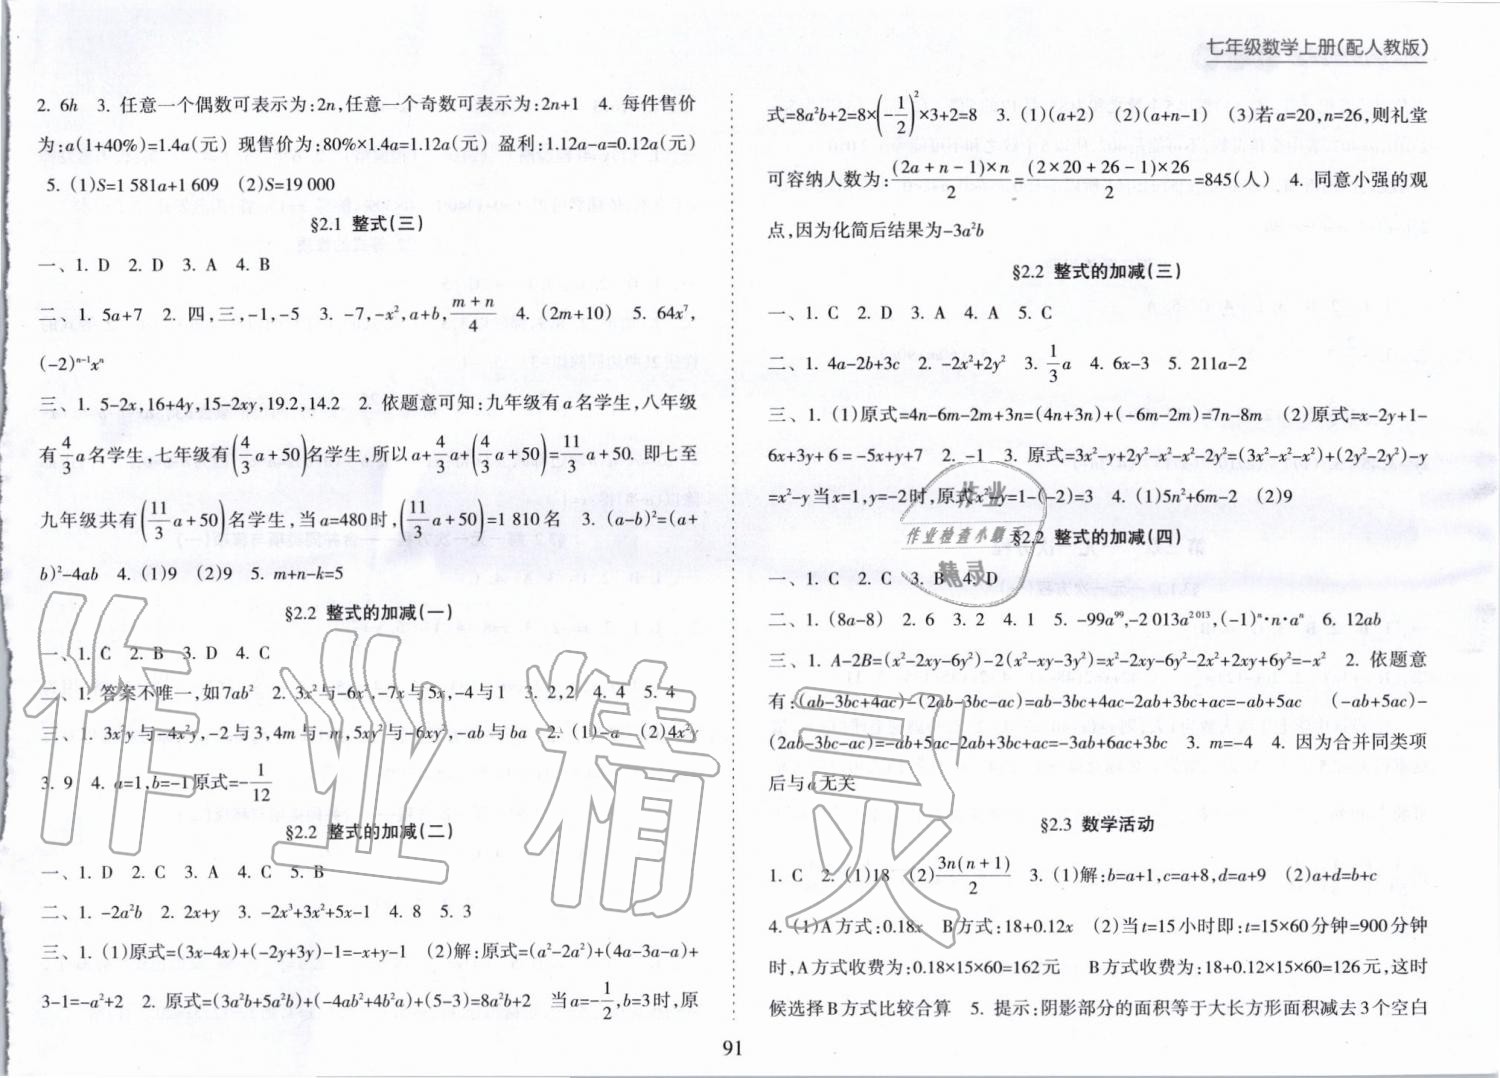 七年级数学上册(配人教版)
2. 6h 3. 任意一个偶数可表示为:2n,任意一个奇数可表示为:2n+1 4. 每件售价
为:a(1+40%)=1.4a(元) 现售价为:80%×1.4a=1.12a(元) 盈利:1.12a-a=0.12a(元)
5. (1)S=1 581a+1 609 (2)S=19 000
§2.1 整式(三)
一、1. D 2. D 3. A 4. B
二、1. 5a+7 2. 四,三,-1,-5 3. -7,-x²,a+b,(m+n)/4 4. (2m+10) 5. 64x⁷,
(-2)ⁿ⁻¹xⁿ
三、1. 5-2x,16+4y,15-2xy,19.2,14.2 2. 依题意可知:九年级有a名学生,八年级
有4/3a名学生,七年级有(4/3a+50)名学生,所以a+4/3a+(4/3a+50)=11/3a+50. 即七至
九年级共有(11/3a+50)名学生,当a=480时,(11/3a+50)=1 810名 3. (a-b)²=(a+
b)²-4ab 4. (1)9 (2)9 5. m+n-k=5
§2.2 整式的加减(一)
一、1. C 2. B 3. D 4. C
二、1. 答案不唯一,如7ab² 2. 3x²与-6x²,-7x与5x,-4与1 3. 2,2 4. 4 5. 4
三、1. 3x²y与-4x²y,-2与3,4m与-m,5xy²与-6xy²,-ab与ba 2. (1)-a (2)4x²y
3. 9 4. a=1,b=-1原式=-1/12
§2.2 整式的加减(二)
一、1. D 2. C 3. A 4. C 5. B
二、1. -2a²b 2. 2x+y 3. -2x³+3x²+5x-1 4. 8 5. 3
三、1. (1)原式=(3x-4x)+(-2y+3y)-1=-x+y-1 (2)解:原式=(a²-2a²)+(4a-3a-a)+
3-1=-a²+2 2. 原式=(3a²b+5a²b)+(-4ab²+4b²a)+(5-3)=8a²b+2 当a=-1/2,b=3时,原
式=8a²b+2=8×(-1/2)²×3+2=8 3. (1)(a+2) (2)(a+n-1) (3)若a=20,n=26,则礼堂
可容纳人数为:(2a+n-1)×n/2=(2×20+26-1)×26/2=845(人) 4. 同意小强的观
点,因为化简后结果为-3a²b
§2.2 整式的加减(三)
一、1. C 2. D 3. A 4. A 5. C
二、1. 4a-2b+3c 2. -2x²+2y² 3. 1/3a 4. 6x-3 5. 211a-2
三、1. (1)原式=4n-6m-2m+3n=(4n+3n)+(-6m-2m)=7n-8m (2)原式=x-2y+1-
6x+3y+6=-5x+y+7 2. -1 3. 原式=3x²-y+2y²-x²-x²-2y²=(3x²-x²-x²)+(2y²-2y²)-y
=x²-y当x=1,y=-2时,原式x²-y=1-(-2)=3 4. (1)5n²+6m-2 (2)9
§2.2 整式的加减(四)
一、1. C 2. C 3. B 4. D
二、1. (8a-8) 2. 6 3. 2 4. 1 5. -99a⁹⁹,-2 013a²⁰¹³,(-1)ⁿ·n·aⁿ 6. 12ab
三、1. A-2B=(x²-2xy-6y²)-2(x²-xy-3y²)=x²-2xy-6y²-2x²+2xy+6y²=-x² 2. 依题意
有:(ab-3bc+4ac)-(2ab-3bc-ac)=ab-3bc+4ac-2ab+3bc+ac=-ab+5ac (-ab+5ac)-
(2ab-3bc-ac)=-ab+5ac-2ab+3bc+ac=-3ab+6ac+3bc 3. m=-4 4. 因为合并同类项
后与a无关
§2.3 数学活动
1. C 2. (1)18 (2)3n(n+1)/2 3. (1)解:b=a+1,c=a+8,d=a+9 (2)a+d=b+c
4. (1)A方式:0.18x B方式:18+0.12x (2)当t=15小时即:t=15×60分钟=900分钟
时,A方式收费为:0.18×15×60=162元 B方式收费为:18+0.12×15×60=126元,这时
候选择B方式比较合算 5. 提示:阴影部分的面积等于大长方形面积减去3个空白
91
作业
作业检查小助手
精灵
作业精灵